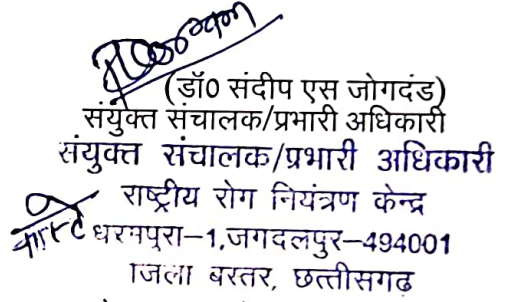 (डॉ0 संदीप एस जोगदंड)
संयुक्त संचालक/प्रभारी अधिकारी
संयुक्त संचालक/प्रभारी अधिकारी
राष्ट्रीय रोग नियंत्रण केन्द्र
धरमपुरा–1,जगदलपुर–494001
जिला बस्तर, छत्तीसगढ़